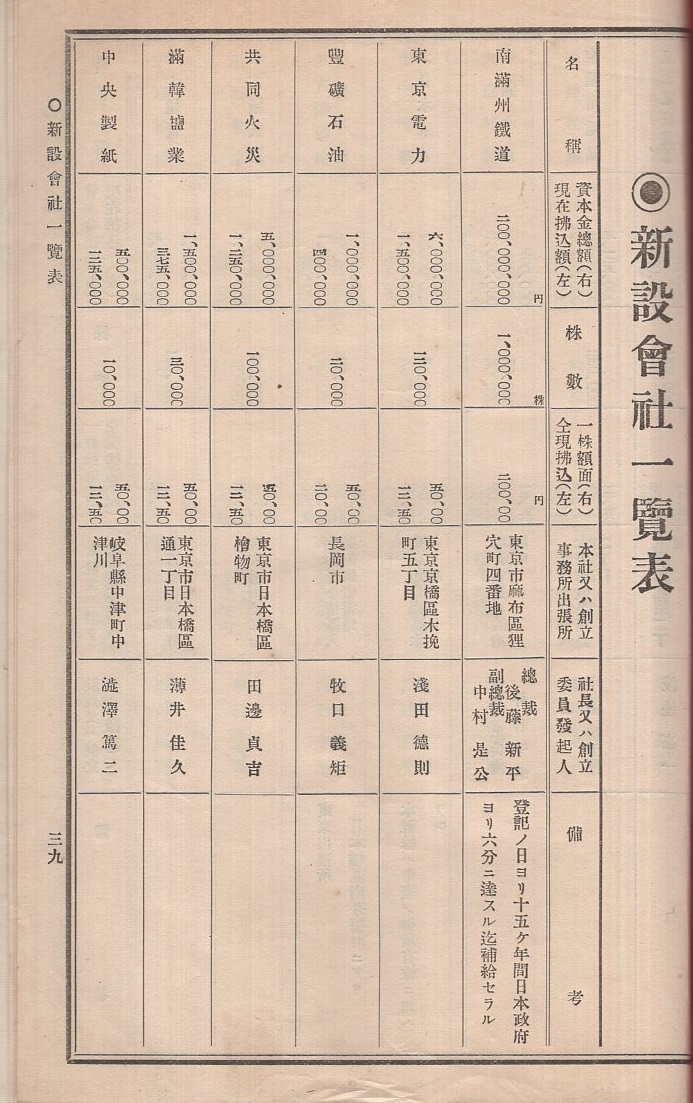 ◉新設會社一覽表
名稱
資本金總額(右)
現在拂込額(左)
株數
一株額面(右)
仝現拂込(左)
本社又ハ創立
事務所出張所
社長又ハ創立
委員發起人
備考
南滿州鐵道
二〇〇、〇〇〇、〇〇〇円
一、〇〇〇、〇〇〇株
二〇〇、〇〇円
東京市麻布區狸
穴町四番地
總裁
後藤新平
副總裁
中村是公
登記ノ日ヨリ十五ケ年間日本政府
ヨリ六分ニ達スル迄補給セラル
東京電力
六、〇〇〇、〇〇〇
一、五〇〇、〇〇〇
一二〇、〇〇〇
五〇、〇〇
一二、五〇
東京京橋區木挽
町五丁目
淺田德則
豐礦石油
一、〇〇〇、〇〇〇
四〇〇、〇〇〇
二〇、〇〇〇
五〇、〇〇
二〇、〇〇
長岡市
牧口義矩
共同火災
五、〇〇〇、〇〇〇
一、二五〇、〇〇〇
一〇〇、〇〇〇
五〇、〇〇
一二、五〇
東京市日本橋區
檜物町
田邊貞吉
滿韓鹽業
一、五〇〇、〇〇〇
三七五、〇〇〇
三〇、〇〇〇
五〇、〇〇
一二、五〇
東京市日本橋區
通一丁目
薄井佳久
中央製紙
五〇〇、〇〇〇
一二五、〇〇〇
一〇、〇〇〇
五〇、〇〇
一二、五〇
岐阜縣中津町中
津川
澁澤篤二
〇新設會社一覽表
三九